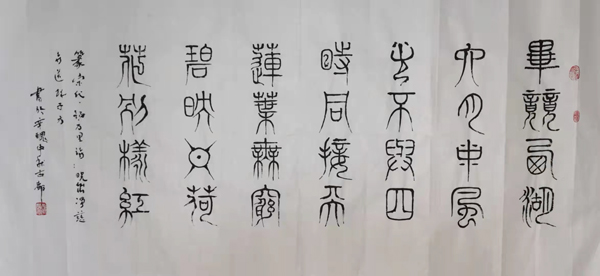 畢竟西湖
六月中風
光不與四
時同接天
蓮葉無窮
碧映日荷
花別樣紅
篆宋代·楊万里詩：曉出淨慈
寺送林子方
書於安徽中 古都